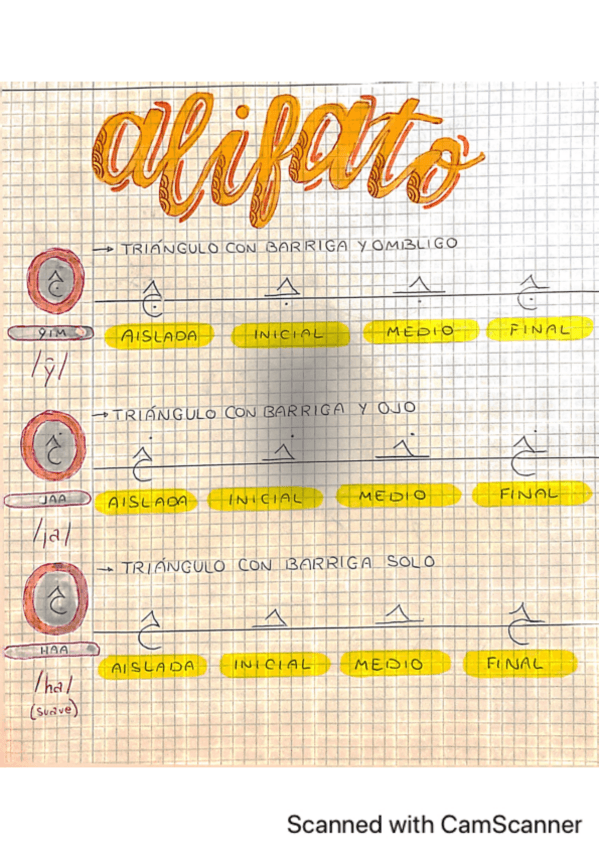 alifato
→ TRIÁNGULO CON BARRIGA Y OMBLIGO
ج
ج ﺟ ﺠ ﺞ
AISLADA INICIAL MEDIO FINAL
ŷIM
/ŷ/
→ TRIÁNGULO CON BARRIGA Y OJO
خ
خ ﺧ ﺨ ﺦ
AISLADA INICIAL MEDIO FINAL
JAA
/ja/
→ TRIÁNGULO CON BARRIGA SOLO
ح
ح ﺣ ﺤ ﺢ
AISLADA INICIAL MEDIO FINAL
HAA
/ha/
(suave)
Scanned with CamScanner